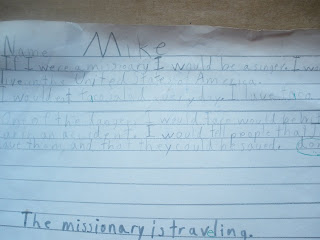 Name Mike
If I were a missionary I would be a singer. I wo
live in the United States of America.
I would
One of the dangers I would face would be hi
car in an accident. I would tell people that J
love them, and that they could be saved.
The missionary is traveling.